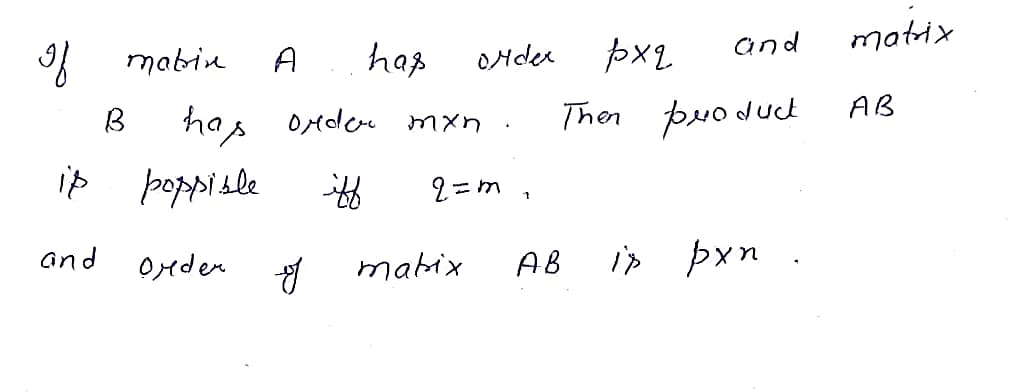 If matrix A has order p×q and matrix
B has order m×n. Then product AB
is possible iff q=m,
and order of matrix AB is p×n.